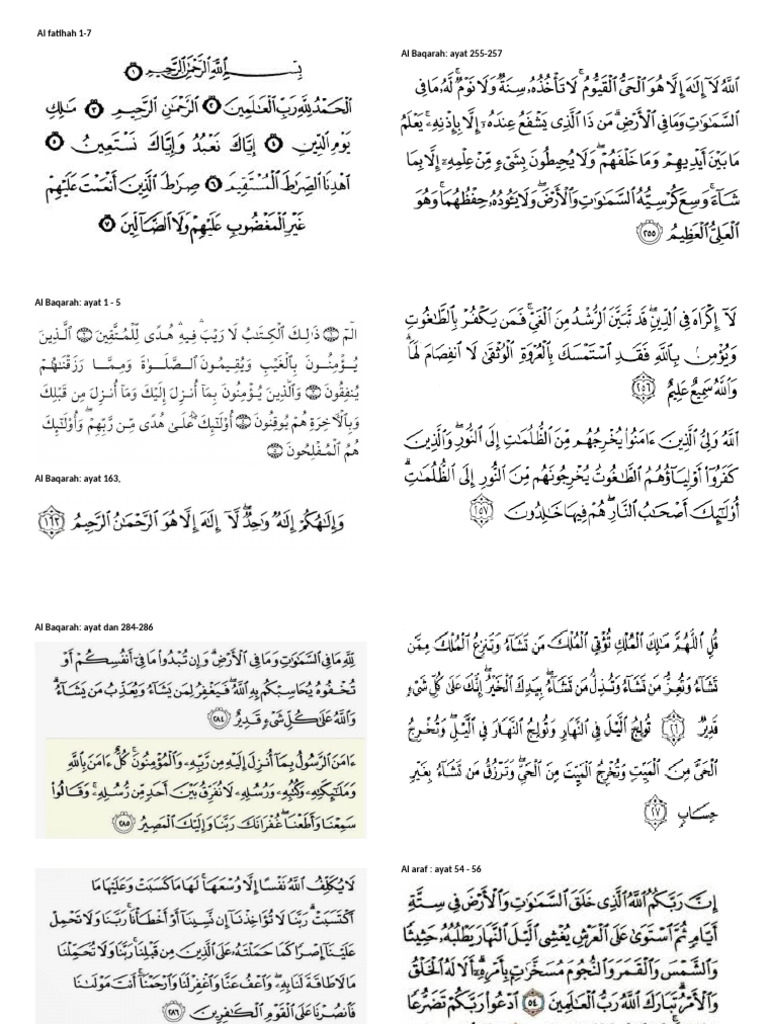 Al fatihah 1-7
بِسْمِ ٱللَّهِ ٱلرَّحْمَٰنِ ٱلرَّحِيمِ ١
ٱلْحَمْدُ لِلَّهِ رَبِّ ٱلْعَالَمِينَ ٢ ٱلرَّحْمَٰنِ ٱلرَّحِيمِ ٣ مَالِكِ
يَوْمِ ٱلدِّينِ ٤ إِيَّاكَ نَعْبُدُ وَإِيَّاكَ نَسْتَعِينُ ٥
ٱهْدِنَا ٱلصِّرَاطَ ٱلْمُسْتَقِيمَ ٦ صِرَاطَ ٱلَّذِينَ أَنْعَمْتَ عَلَيْهِمْ
غَيْرِ ٱلْمَغْضُوبِ عَلَيْهِمْ وَلَا ٱلضَّالِّينَ ٧
Al Baqarah: ayat 1 - 5
الٓمٓ ١ ذَٰلِكَ ٱلْكِتَابُ لَا رَيْبَ ۛ فِيهِ ۛ هُدًى لِّلْمُتَّقِينَ ٢ ٱلَّذِينَ
يُؤْمِنُونَ بِٱلْغَيْبِ وَيُقِيمُونَ ٱلصَّلَوٰةَ وَمِمَّا رَزَقْنَٰهُمْ
يُنفِقُونَ ٣ وَٱلَّذِينَ يُؤْمِنُونَ بِمَآ أُنزِلَ إِلَيْكَ وَمَآ أُنزِلَ مِن قَبْلِكَ
وَبِٱلْأَخِرَةِ هُمْ يُوقِنُونَ ٤ أُو۟لَٰٓئِكَ عَلَىٰ هُدًى مِّن رَّبِّهِمْ ۖ وَأُو۟لَٰٓئِكَ
هُمُ ٱلْمُفْلِحُونَ ٥
Al Baqarah: ayat 163,
وَإِلَٰهُكُمْ إِلَٰهٌ وَٰحِدٌ ۖ لَّآ إِلَٰهَ إِلَّا هُوَ ٱلرَّحْمَٰنُ ٱلرَّحِيمُ ١٦٣
Al Baqarah: ayat dan 284-286
لِّلَّهِ مَا فِى ٱلسَّمَٰوَٰتِ وَمَا فِى ٱلْأَرْضِ ۗ وَإِن تُبْدُوا۟ مَا فِىٓ أَنفُسِكُمْ أَوْ
تُخْفُوهُ يُحَاسِبْكُم بِهِ ٱللَّهُ ۖ فَيَغْفِرُ لِمَن يَشَآءُ وَيُعَذِّبُ مَن يَشَآءُ ۗ
وَٱللَّهُ عَلَىٰ كُلِّ شَىْءٍ قَدِيرٌ ٢٨٤
ءَامَنَ ٱلرَّسُولُ بِمَآ أُنزِلَ إِلَيْهِ مِن رَّبِّهِۦ وَٱلْمُؤْمِنُونَ ۚ كُلٌّ ءَامَنَ بِٱللَّهِ
وَمَلَٰٓئِكَتِهِۦ وَكُتُبِهِۦ وَرُسُلِهِۦ لَا نُفَرِّقُ بَيْنَ أَحَدٍ مِّن رُّسُلِهِۦ ۚ وَقَالُوا۟
سَمِعْنَا وَأَطَعْنَا ۖ غُفْرَانَكَ رَبَّنَا وَإِلَيْكَ ٱلْمَصِيرُ ٢٨٥
لَا يُكَلِّفُ ٱللَّهُ نَفْسًا إِلَّا وُسْعَهَا ۚ لَهَا مَا كَسَبَتْ وَعَلَيْهَا مَا
ٱكْتَسَبَتْ ۗ رَبَّنَا لَا تُؤَاخِذْنَآ إِن نَّسِينَآ أَوْ أَخْطَأْنَا ۚ رَبَّنَا وَلَا تَحْمِلْ
عَلَيْنَآ إِصْرًا كَمَا حَمَلْتَهُۥ عَلَى ٱلَّذِينَ مِن قَبْلِنَا ۚ رَبَّنَا وَلَا تُحَمِّلْنَا
مَا لَا طَاقَةَ لَنَا بِهِۦ ۖ وَٱعْفُ عَنَّا وَٱغْفِرْ لَنَا وَٱرْحَمْنَآ ۚ أَنتَ مَوْلَىٰنَا
فَٱنصُرْنَا عَلَى ٱلْقَوْمِ ٱلْكَٰفِرِينَ ٢٨٦
Al Baqarah: ayat 255-257
ٱللَّهُ لَآ إِلَٰهَ إِلَّا هُوَ ٱلْحَىُّ ٱلْقَيُّومُ ۚ لَا تَأْخُذُهُۥ سِنَةٌ وَلَا نَوْمٌ ۚ لَّهُۥ مَا فِى
ٱلسَّمَٰوَٰتِ وَمَا فِى ٱلْأَرْضِ ۗ مَن ذَا ٱلَّذِى يَشْفَعُ عِندَهُۥٓ إِلَّا بِإِذْنِهِۦ ۚ يَعْلَمُ
مَا بَيْنَ أَيْدِيهِمْ وَمَا خَلْفَهُمْ ۖ وَلَا يُحِيطُونَ بِشَىْءٍ مِّنْ عِلْمِهِۦٓ إِلَّا بِمَا
شَآءَ ۚ وَسِعَ كُرْسِيُّهُ ٱلسَّمَٰوَٰتِ وَٱلْأَرْضَ ۖ وَلَا يَـُٔودُهُۥ حِفْظُهُمَا ۚ وَهُوَ
ٱلْعَلِىُّ ٱلْعَظِيمُ ٢٥٥
لَآ إِكْرَاهَ فِى ٱلدِّينِ ۖ قَد تَّبَيَّنَ ٱلرُّشْدُ مِنَ ٱلْغَىِّ ۚ فَمَن يَكْفُرْ بِٱلطَّٰغُوتِ
وَيُؤْمِنۢ بِٱللَّهِ فَقَدِ ٱسْتَمْسَكَ بِٱلْعُرْوَةِ ٱلْوُثْقَىٰ لَا ٱنفِصَامَ لَهَا ۗ
وَٱللَّهُ سَمِيعٌ عَلِيمٌ ٢٥٦
ٱللَّهُ وَلِىُّ ٱلَّذِينَ ءَامَنُوا۟ يُخْرِجُهُم مِّنَ ٱلظُّلُمَٰتِ إِلَى ٱلنُّورِ ۖ وَٱلَّذِينَ
كَفَرُوٓا۟ أَوْلِيَآؤُهُمُ ٱلطَّٰغُوتُ يُخْرِجُونَهُم مِّنَ ٱلنُّورِ إِلَى ٱلظُّلُمَٰتِ ۗ
أُو۟لَٰٓئِكَ أَصْحَٰبُ ٱلنَّارِ ۖ هُمْ فِيهَا خَٰلِدُونَ ٢٥٧
قُلِ ٱللَّهُمَّ مَٰلِكَ ٱلْمُلْكِ تُؤْتِى ٱلْمُلْكَ مَن تَشَآءُ وَتَنزِعُ ٱلْمُلْكَ مِمَّن
تَشَآءُ وَتُعِزُّ مَن تَشَآءُ وَتُذِلُّ مَن تَشَآءُ ۖ بِيَدِكَ ٱلْخَيْرُ ۖ إِنَّكَ عَلَىٰ كُلِّ شَىْءٍ
قَدِيرٌ ٢٦ تُولِجُ ٱلَّيْلَ فِى ٱلنَّهَارِ وَتُولِجُ ٱلنَّهَارَ فِى ٱلَّيْلِ ۖ وَتُخْرِجُ
ٱلْحَىَّ مِنَ ٱلْمَيِّتِ وَتُخْرِجُ ٱلْمَيِّتَ مِنَ ٱلْحَىِّ ۖ وَتَرْزُقُ مَن تَشَآءُ بِغَيْرِ
حِسَابٍ ٢٧
Al araf : ayat 54 - 56
إِنَّ رَبَّكُمُ ٱللَّهُ ٱلَّذِى خَلَقَ ٱلسَّمَٰوَٰتِ وَٱلْأَرْضَ فِى سِتَّةِ
أَيَّامٍ ثُمَّ ٱسْتَوَىٰ عَلَى ٱلْعَرْشِ يُغْشِى ٱلَّيْلَ ٱلنَّهَارَ يَطْلُبُهُۥ حَثِيثًا
وَٱلشَّمْسَ وَٱلْقَمَرَ وَٱلنُّجُومَ مُسَخَّرَٰتٍۭ بِأَمْرِهِۦٓ ۗ أَلَا لَهُ ٱلْخَلْقُ
وَٱلْأَمْرُ ۗ تَبَارَكَ ٱللَّهُ رَبُّ ٱلْعَٰلَمِينَ ٥٤ ٱدْعُوا۟ رَبَّكُمْ تَضَرُّعًا